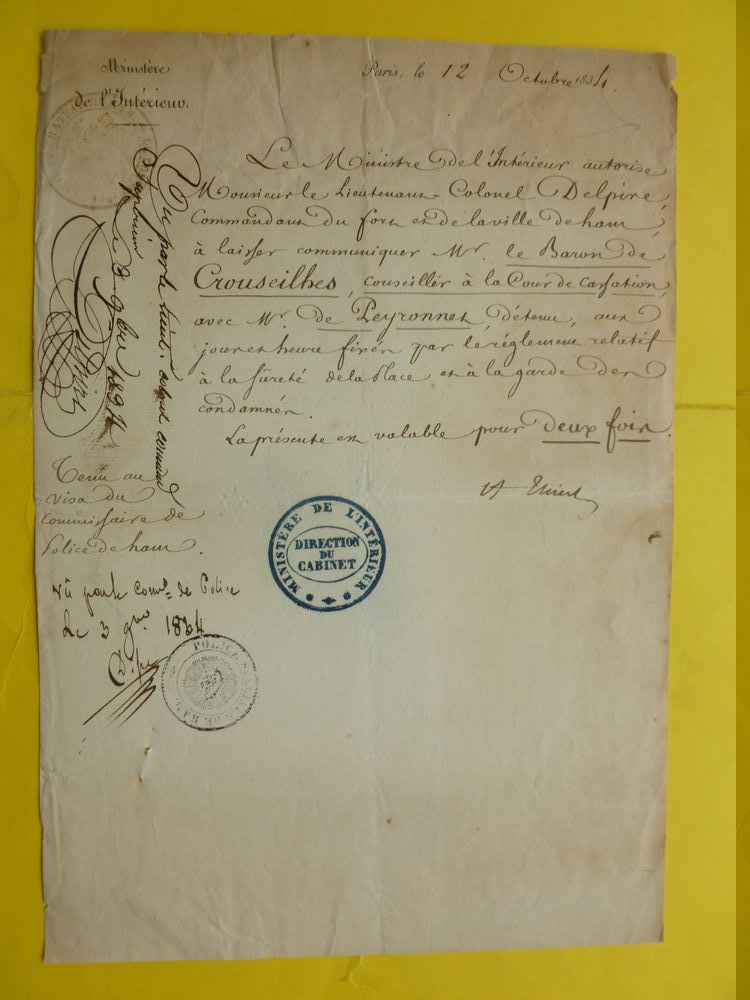 Ministère
de l'Intérieur.
Paris, le 12 Octobre 1834.
Le Ministre de l'Intérieur autorise
Monsieur le Lieutenant-Colonel Delpire,
Commandant du fort et de la ville de ham,
à laisser communiquer Mr. le Baron de
Crouseilhes, conseiller à la Cour de Cassation,
avec Mr. de Peyronnet, détenu, aux
jour et heure fixés par le réglement relatif
à la sûreté de la Place et à la garde des
condamnés.
La présente est valable pour deux fois.
A Thiers
Vu par le Lieut. colonel command
le 3 9bre 1834
Delpire
Tenu au
visa du
Commissaire de
Police de ham.
Vû par le Comre de Police
Le 3 9bre 1834
MINISTÈRE DE L'INTÉRIEUR
DIRECTION
DU
CABINET
POLICE
DE HAM